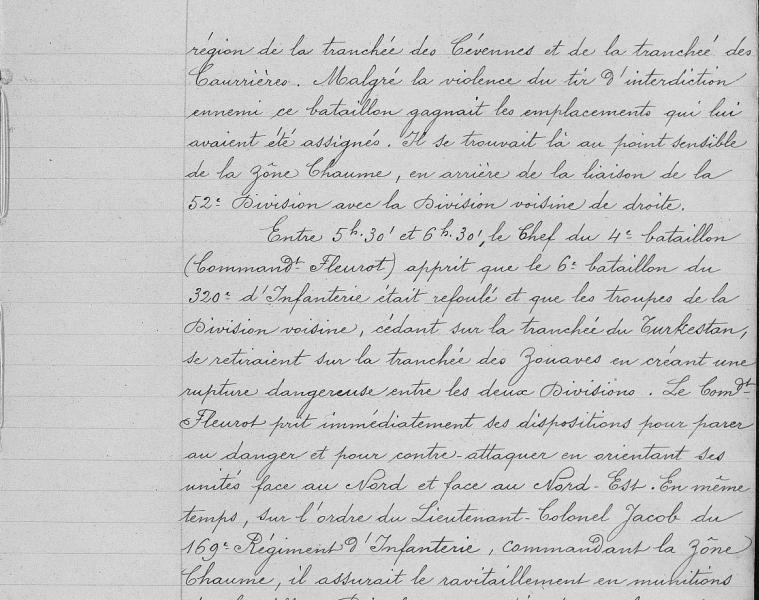 région de la tranchée des Cévennes et de la tranchée des
Caurrières. Malgré la violence du tir d'interdiction
ennemi ce bataillon gagnait les emplacements qui lui
avaient été assignés. Il se trouvait là au point sensible
de la zône Chaume, en arrière de la liaison de la
52e Division avec la Division voisine de droite.
Entre 5h.30' et 6h.30', le Chef du 4e bataillon
(Commandt Fleurot) apprit que le 6e bataillon du
320e d'Infanterie était refoulé et que les troupes de la
Division voisine, cédant sur la tranchée du Turkestan,
se retiraient sur la tranchée des Zouaves en créant une
rupture dangereuse entre les deux Divisions. Le Comdt
Fleurot prit immédiatement ses dispositions pour parer
au danger et pour contre-attaquer en orientant ses
unités face au Nord et face au Nord-Est. En même
temps, sur l'ordre du Lieutenant-Colonel Jacob du
169e Régiment d'Infanterie, commandant la zône
Chaume, il assurait le ravitaillement en munitions